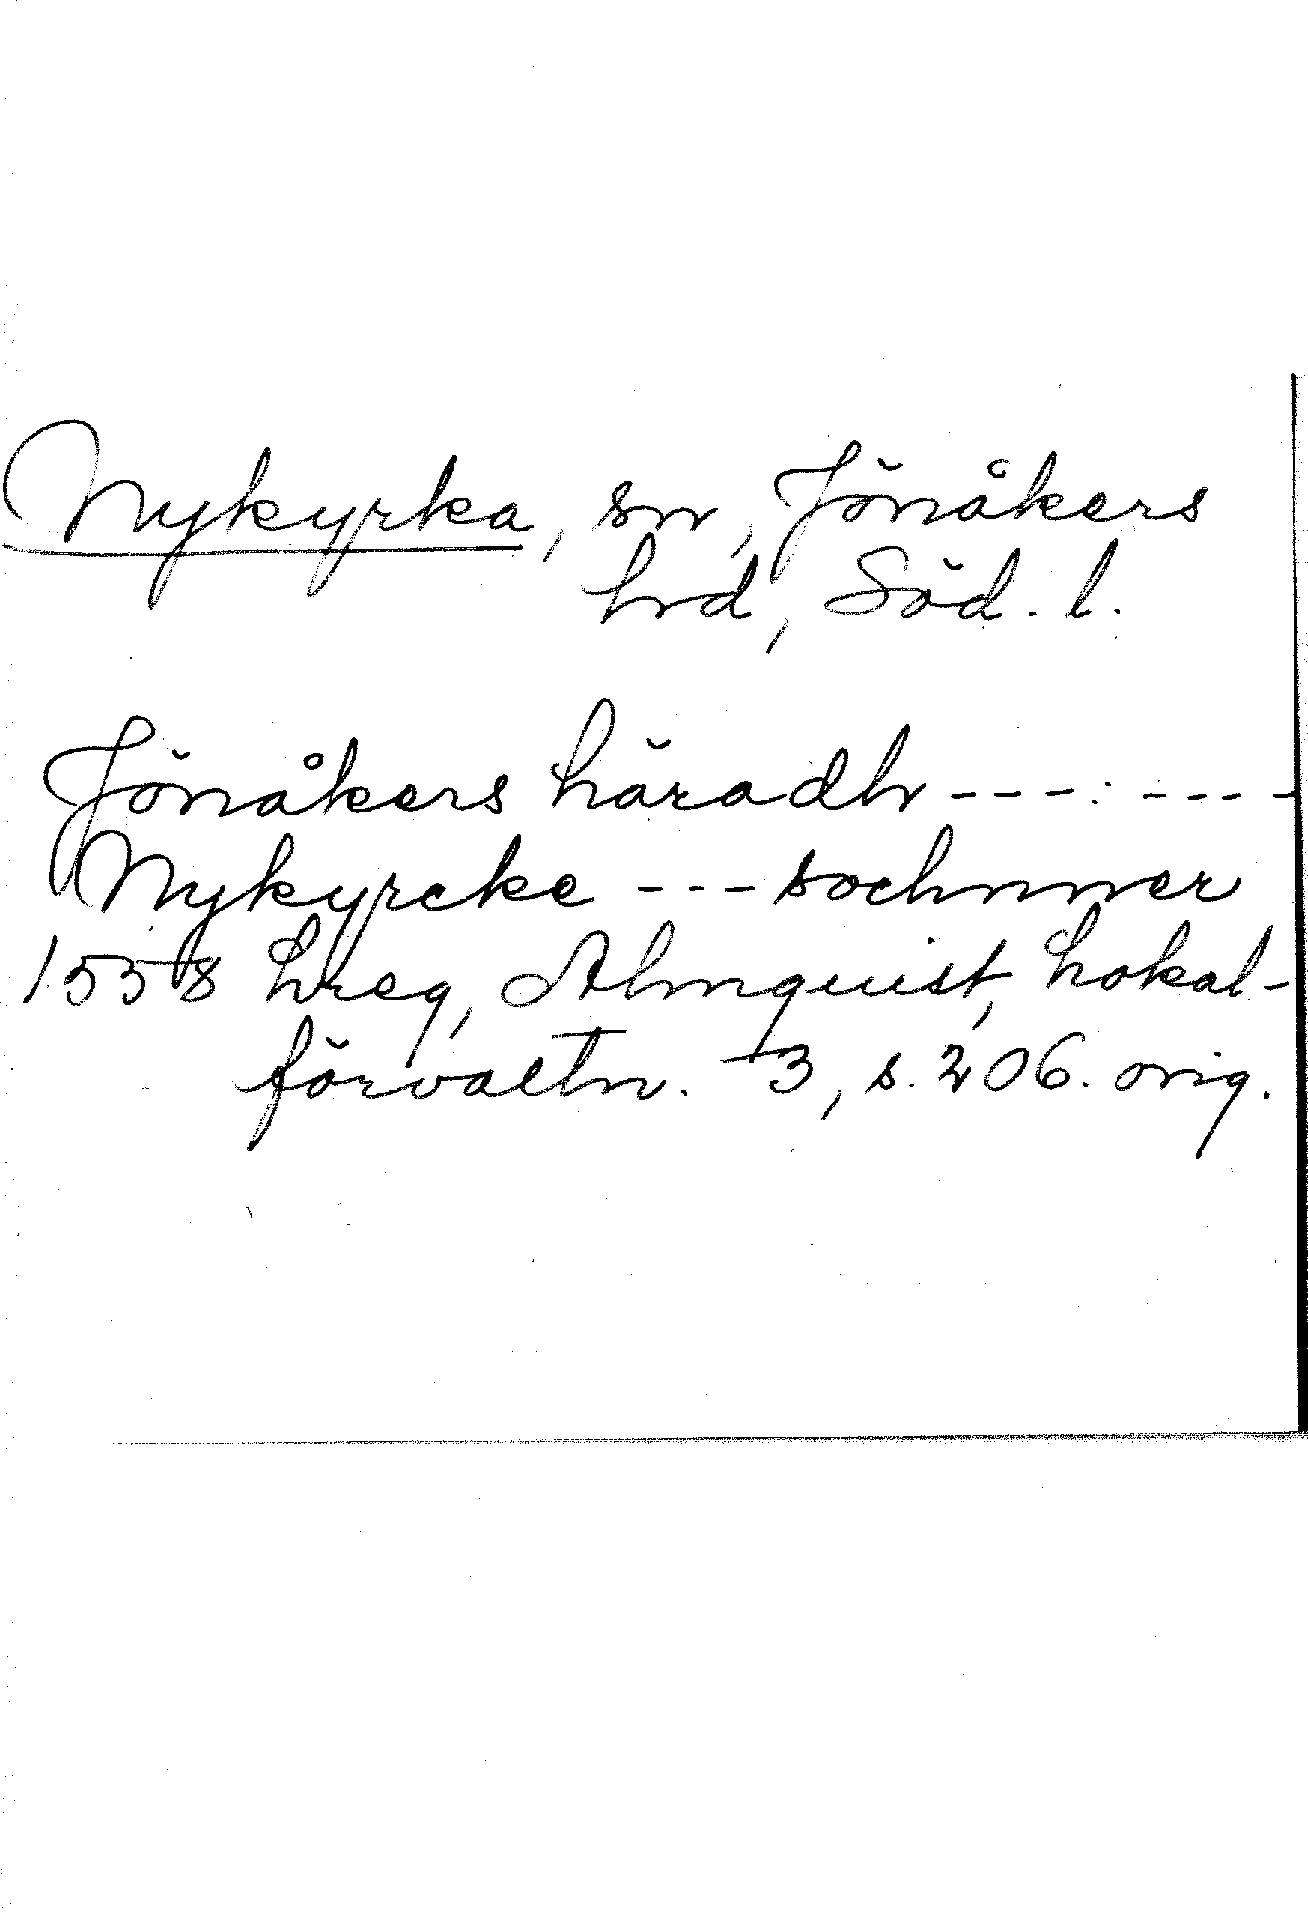 Nykyrka, sn, Jönåkers
hrd, Söd. l.
Jönåkers häradh ---:----
Nykyrcke --- sochnner
1558 hreg, Almquist, Lokal-
förvaltn. 3, s. 206. orig.